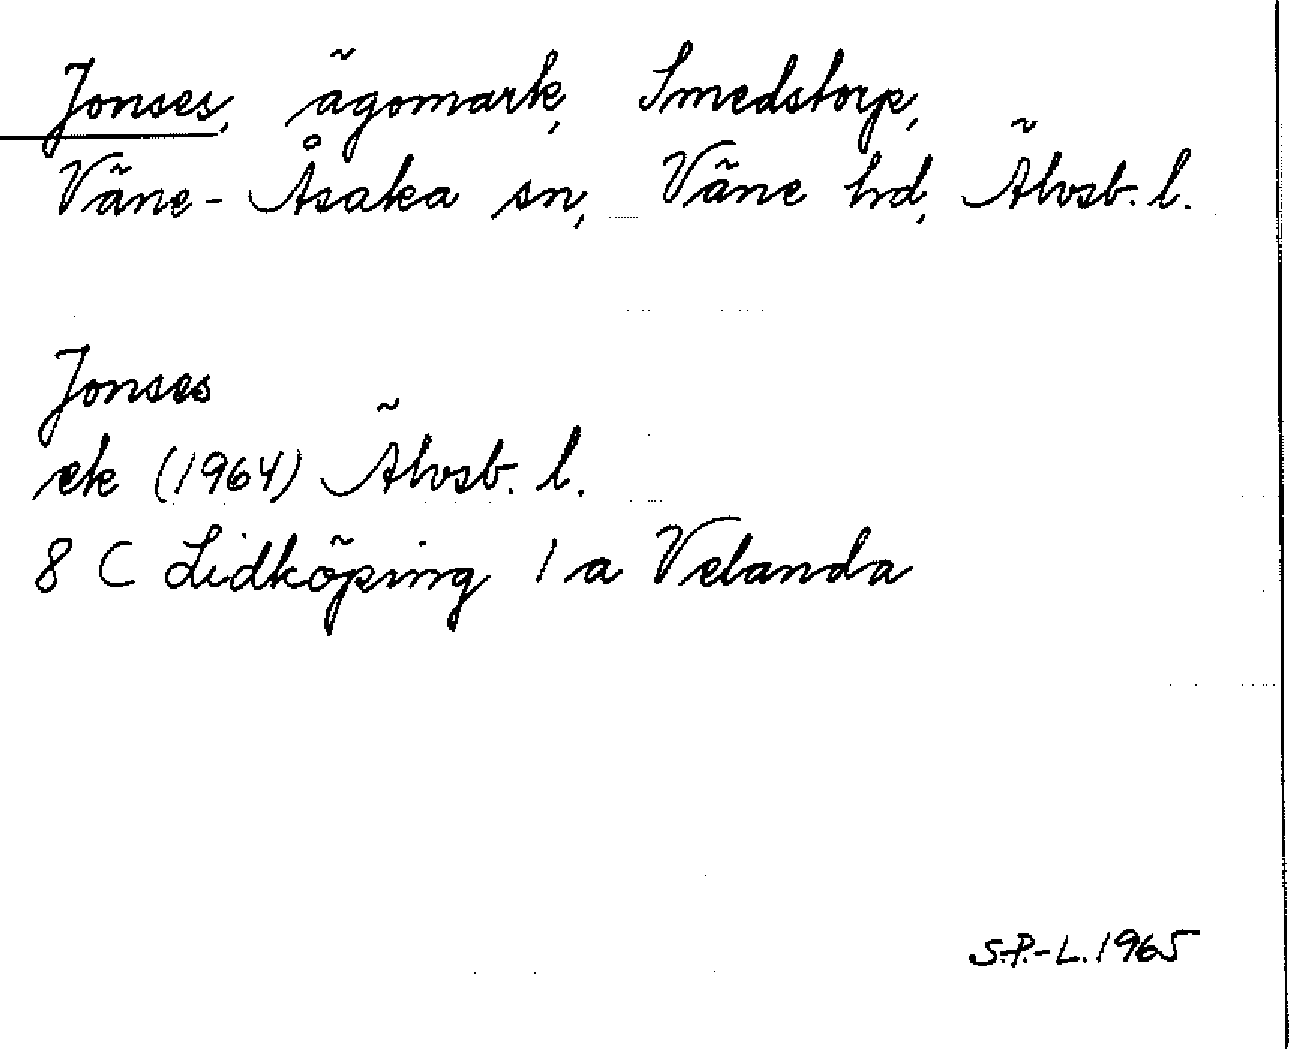 Jonses, ägomark, Smedstorp,
Väne-Åsaka sn, Väne hd, Älvsb. l.
Jonses
ek (1964) Älvsb. l.
8 C Lidköping 1 a Velanda
S.P.-L. 1965